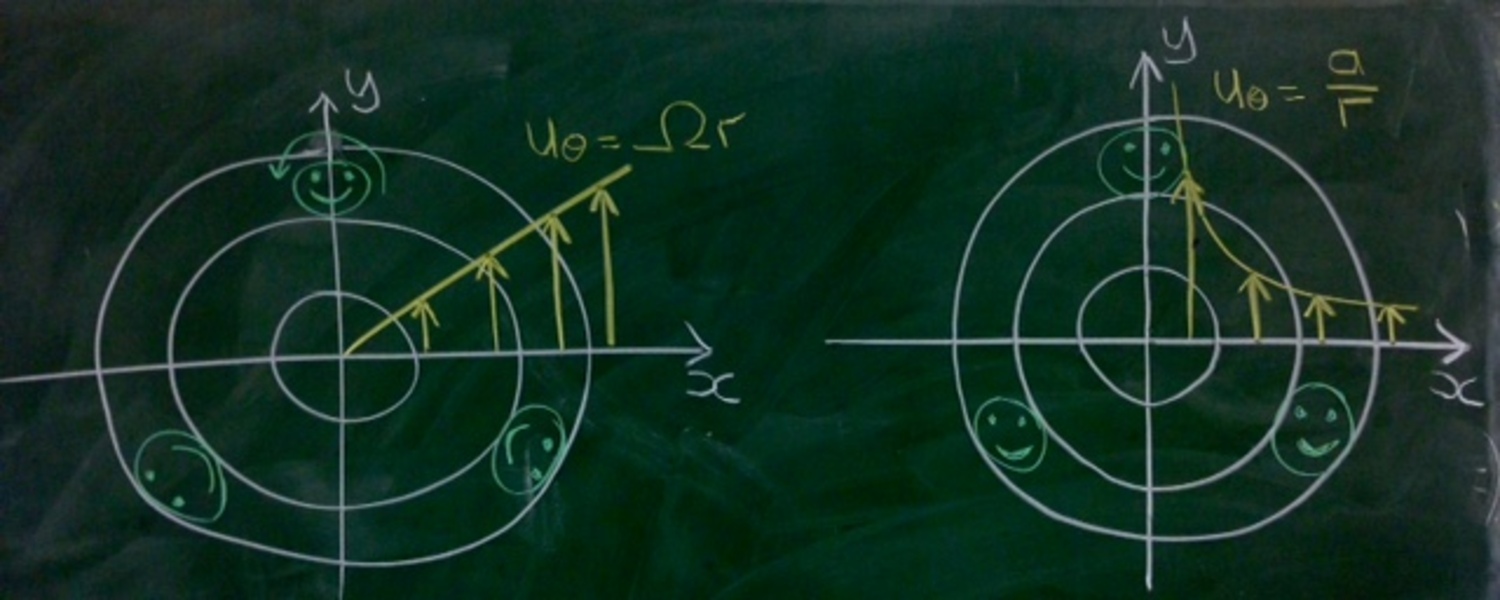 y
uθ = Ωr
x
y
uθ = a/r
x